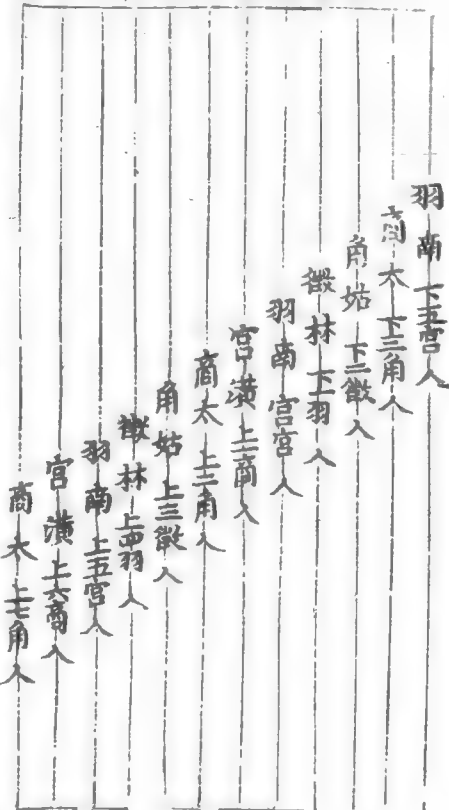 羽南下五宮入
商太下三角入
角姑下二徵入
徵林下一羽入
羽南宮宮入
宮潢上一商入
商太上二角入
角姑上三徵入
徵林上四羽入
羽南上五宮入
宮潢上六商入
商太上七角入